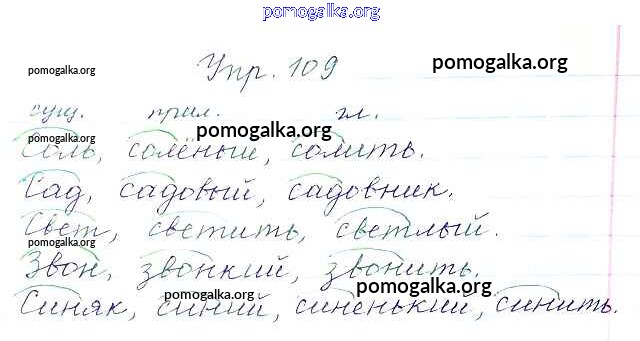 pomogalka.org
Упр. 109
pomogalka.org
pomogalka.org
сущ. прил. гл.
pomogalka.org
pomogalka.org
Соль, солёный, солить.
Сад, садовый, садовник.
Свет, светить, светлый.
pomogalka.org
Звон, звонкий, звонить.
pomogalka.org
pomogalka.org
Синяк, синий, синенький, синить.